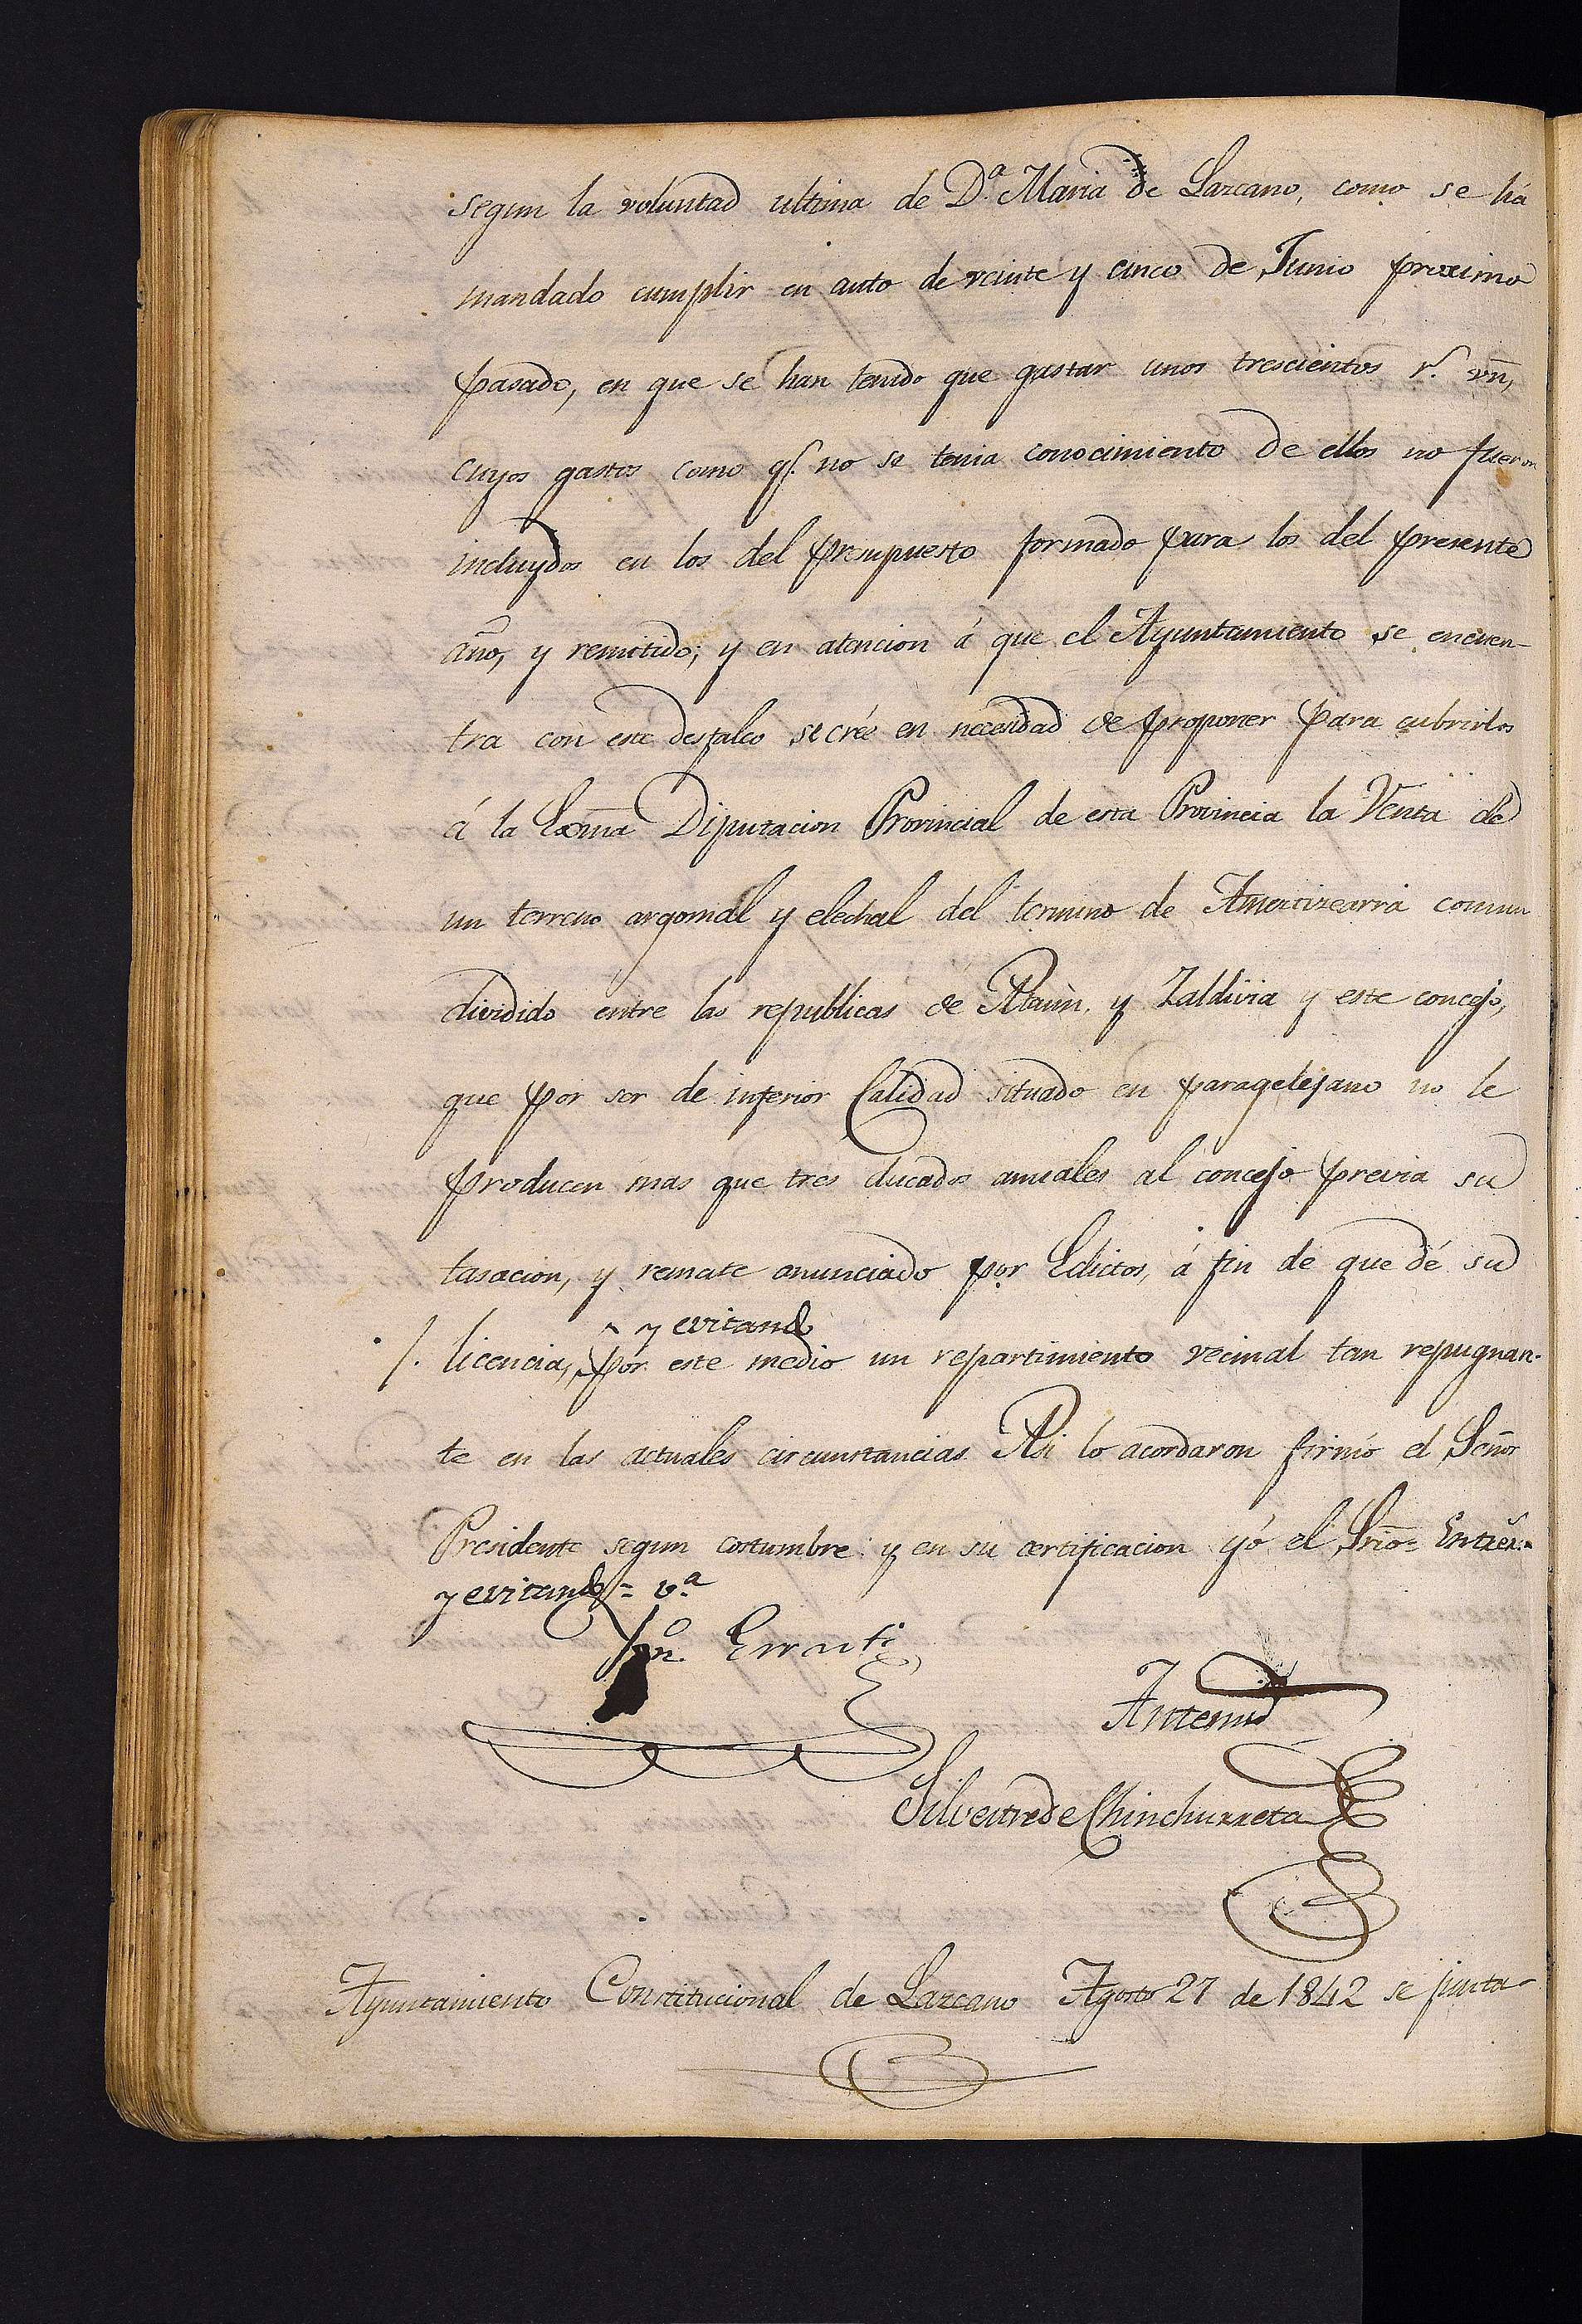 segun la voluntad ultima de D.ª Maria de Lazcano, como se há
mandado cumplir en auto de veinte y cinco de Junio proximo
pasado, en que se han tenido que gastar unos trescientos r.s vn,
cuyos gastos como q.e no se tenia conocimiento de ellos no fueron
incluydos en los del presupuesto formado para los del presente
año, y remitido; y en atencion á que el Ayuntamiento se encuen-
tra con este desfalco se crée en necesidad de proponer para cubrirlos
á la Exma Diputacion Provincial de esta Provincia la Venta de
un terreno argomal y elechal del termino de comun
dividido entre las republicas de Ataun, y Zaldivia y este concejo,
que por ser de inferior Calidad situado en parage lejano no le
producen mas que tres ducados anuales al concejo previa su
tasacion, y remate anunciado por Edictos, á fin de que dé su
^ y evitando
/. licencia, por este medio un repartimiento vecinal tan repugnan-
te en las actuales circunstancias. Asi lo acordaron firmó el Señor
Presidente segun costumbre y en su certificacion yó el Srio=
y evitando = v.ª
Errauti
Antemi
Silvestre de Chinchurreta
Ayuntamiento Constitucional de Lazcano Agosto 27 de 1842 se junta